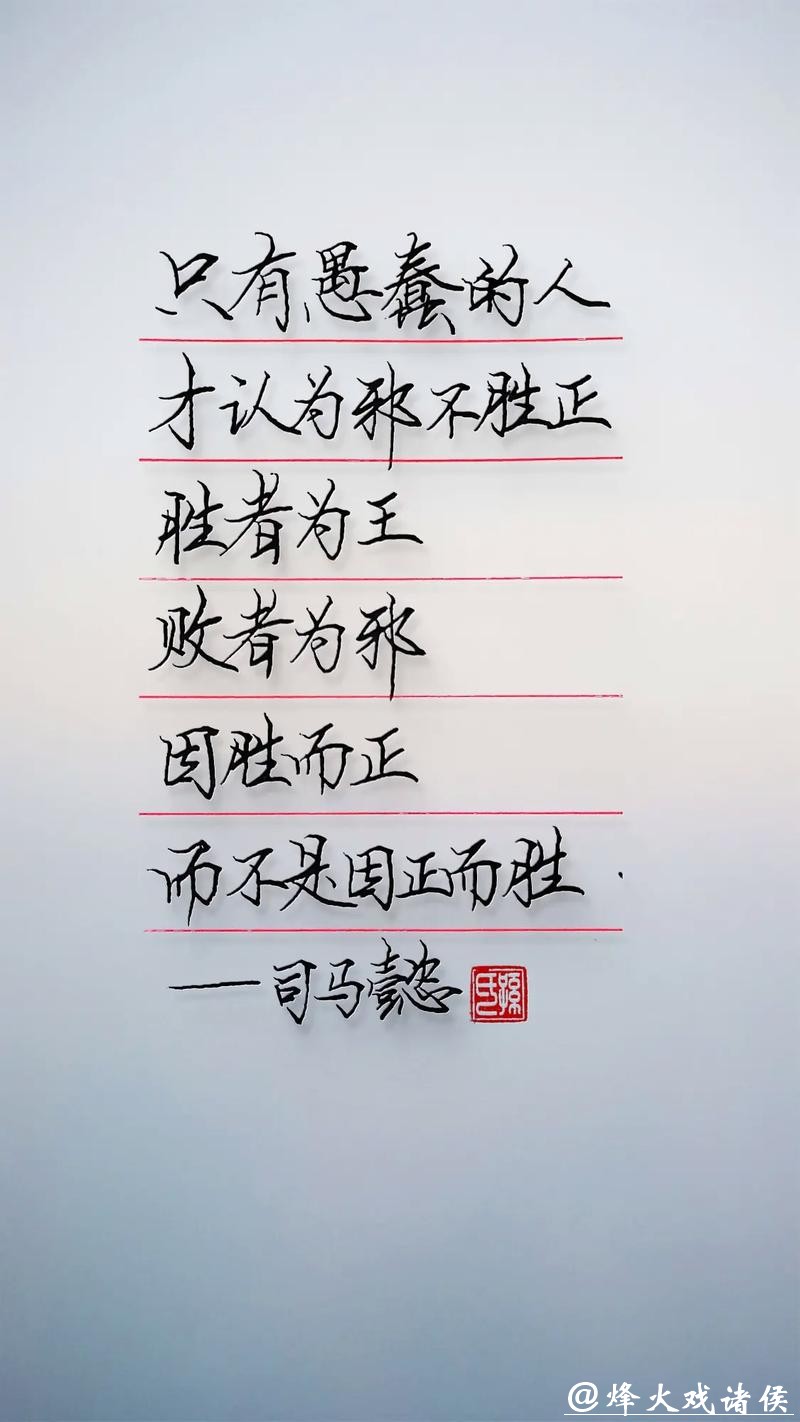 只有愚蠢的人
才认为邪不胜正
胜者为王
败者为邪
因胜而正
而不是因正而胜.
——司马懿
孫氏
@烽火戏诸侯